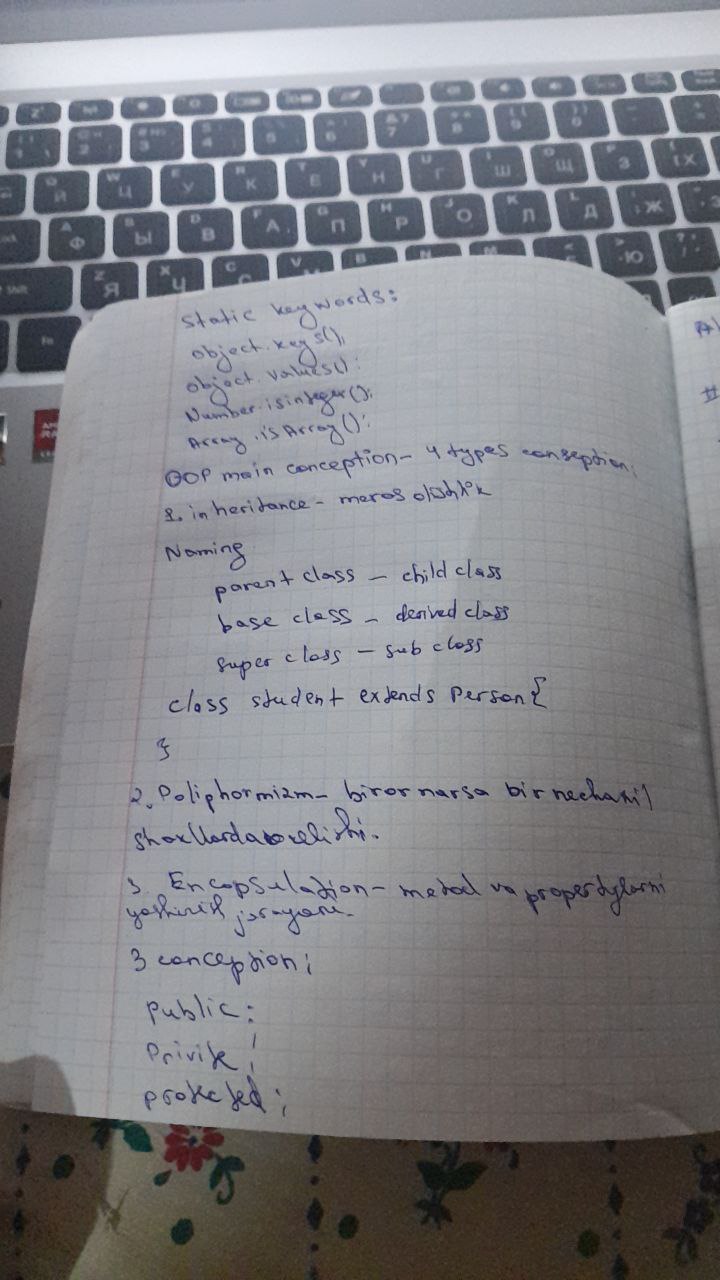 Static keywords:
Object.keys();
Object.values();
Number.isinteger();
Array.isArray();
OOP main conception - 4 types conseption;
1. inheritance - meros olishlik
Naming
parent class - child class
base class - derived class
super class - sub class
class student extends Person{
}
2. Poliphormizm - biror narsa bir necha xil
shakllarda kelishi.
3. Encapsulation - metod va propertylarni
yashirish jarayoni.
3 conception;
public:
Privite;
protected;